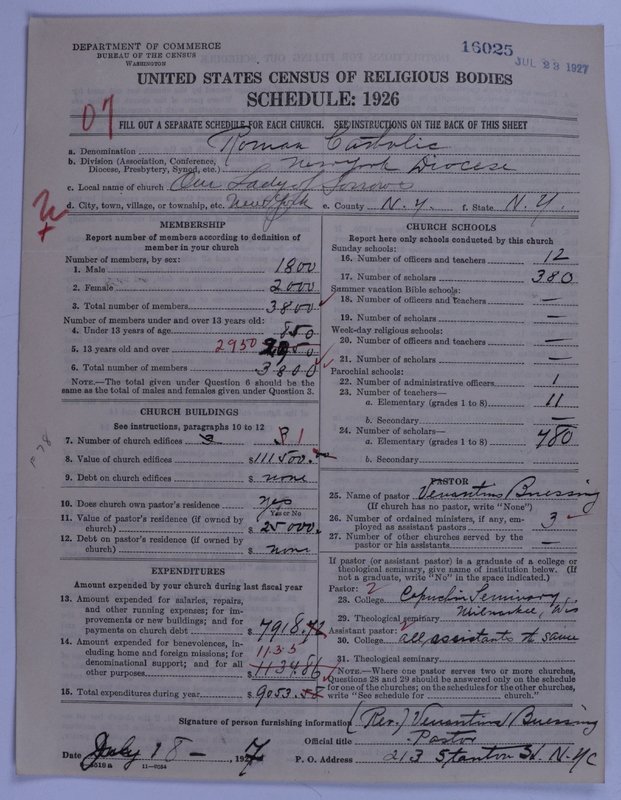 DEPARTMENT OF COMMERCE
BUREAU OF THE CENSUS
WASHINGTON
16025
JUL 23 1927
UNITED STATES CENSUS OF RELIGIOUS BODIES
SCHEDULE: 1926
07
FILL OUT A SEPARATE SCHEDULE FOR EACH CHURCH. SEE INSTRUCTIONS ON THE BACK OF THIS SHEET
a. Denomination Roman Catholic
b. Division (Association, Conference, Diocese, Presbytery, Synod, etc.) New York Diocese
c. Local name of church Our Lady of Sorrows
d. City, town, village, or township, etc. New York e. County N.Y. f. State N.Y.
MEMBERSHIP
Report number of members according to definition of
member in your church
Number of members, by sex:
1. Male 1800
2. Female 2000
3. Total number of members 3800
Number of members under and over 13 years old:
4. Under 13 years of age 850
5. 13 years old and over 2950 2950
6. Total number of members 3800
NOTE.—The total given under Question 6 should be the
same as the total of males and females given under Question 3.
CHURCH BUILDINGS
See instructions, paragraphs 10 to 12
7. Number of church edifices 1
8. Value of church edifices $111500.
9. Debt on church edifices $ none
10. Does church own pastor's residence yes
Yes or No
11. Value of pastor's residence (if owned by
church) $ 25000.
12. Debt on pastor's residence (if owned by
church) $ none
EXPENDITURES
Amount expended by your church during last fiscal year
13. Amount expended for salaries, repairs,
and other running expenses; for im-
provements or new buildings; and for
payments on church debt $ 7918.72
14. Amount expended for benevolences, in-
cluding home and foreign missions; for
denominational support; and for all
other purposes $ 1135 1134.86
15. Total expenditures during year $ 9053.58
CHURCH SCHOOLS
Report here only schools conducted by this church
Sunday schools:
16. Number of officers and teachers 12
17. Number of scholars 380
Summer vacation Bible schools:
18. Number of officers and teachers —
19. Number of scholars —
Week-day religious schools:
20. Number of officers and teachers —
21. Number of scholars —
Parochial schools:
22. Number of administrative officers 1
23. Number of teachers—
a. Elementary (grades 1 to 8) 11
b. Secondary —
24. Number of scholars—
a. Elementary (grades 1 to 8) 480
b. Secondary
PASTOR
25. Name of pastor Venantius Buessing
(If church has no pastor, write "None")
26. Number of ordained ministers, if any, em-
ployed as assistant pastors 3
27. Number of other churches served by the
pastor or his assistants —
If pastor (or assistant pastor) is a graduate of a college or
theological seminary, give name of institution below. (If
not a graduate, write "No" in the space indicated.)
Pastor: 2
28. College Capuchin Seminary
Milwaukee, Wis
29. Theological seminary
Assistant pastor: 2
30. College all assistants the same
31. Theological seminary
NOTE.—Where one pastor serves two or more churches,
Questions 28 and 29 should be answered only on the schedule
for one of the churches; on the schedules for the other churches,
write "See schedule for church."
Signature of person furnishing information (Rev.) Venantius Buessing
Official title Pastor
Date July 18 -, 1927 P. O. Address 213 Stanton St. N.Y.C
11—9584